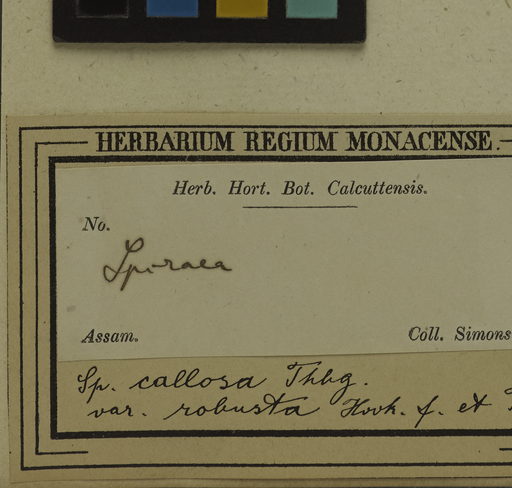 HERBARIUM REGIUM MONACENSE.
Herb. Hort. Bot. Calcuttensis.
No.
Spiraea
Assam. Coll. Simons
Sp. callosa Thbg.
var. robusta Hook. f. et